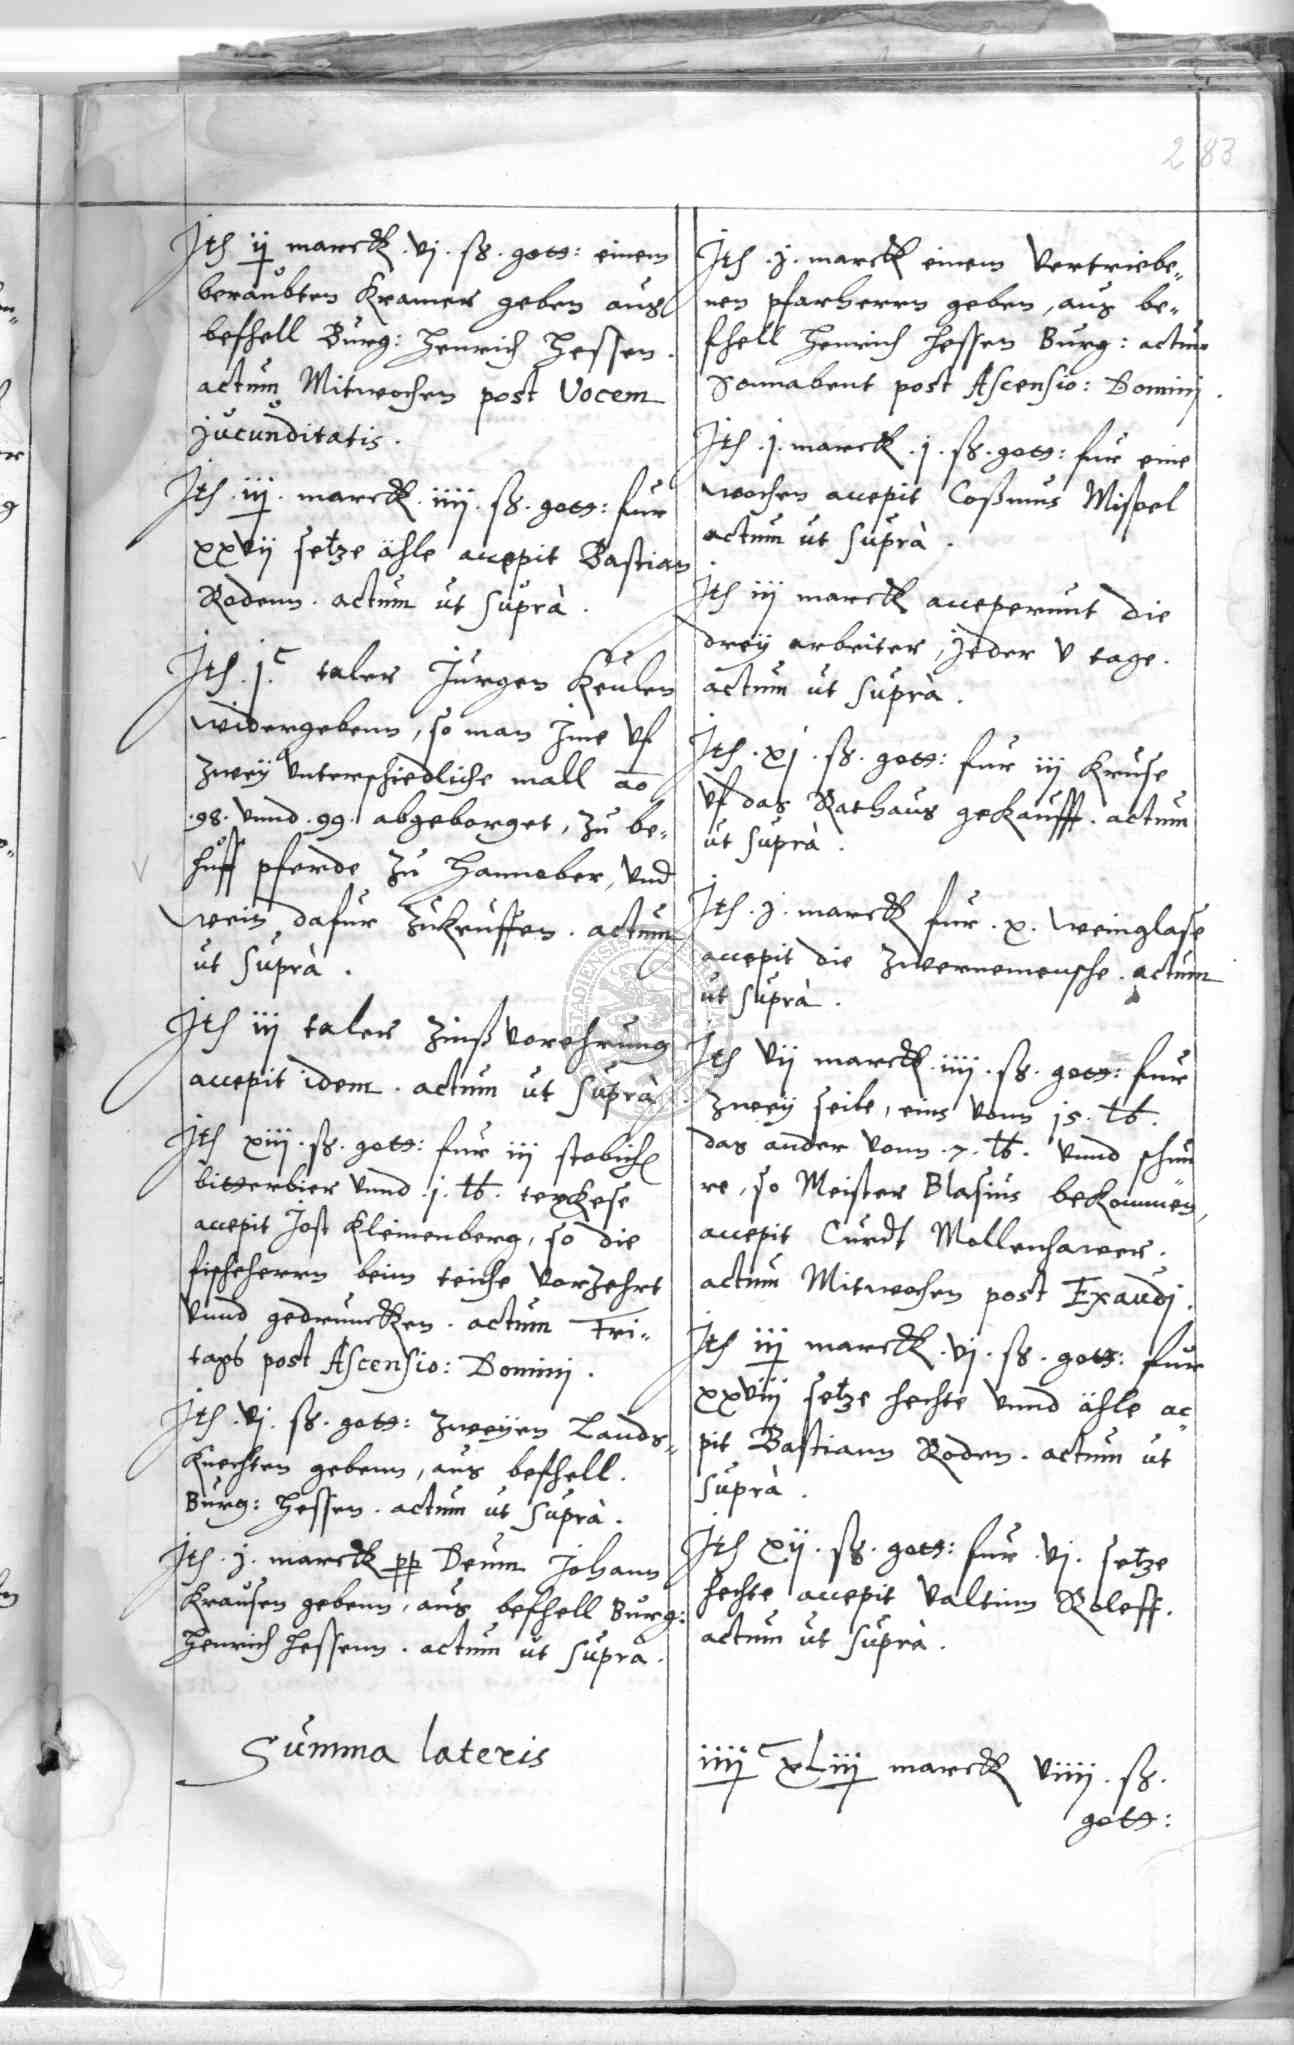 283
Jth ij marck. vj. sz. gott: einem
beraubten Kramer geben aus
befhell Burg: Henrich Hessen.
actum Mitwochen post Vocem
Jucunditatis.
Jth. iij. marck. iiij. sz. gott: fur
xxvij setze ähle accepit Bastian
Rodenn. actum ut suprà.
Jth. j.c taler Jurgen Keulen
widergebenn, so man Jme vf
zweÿ vnterschiedliche mall ao
.98. vnnd .99. abgeborget, zu be„
huff pferde zu Hannober, vnd
wein dafur zukeuffen. actum
ut suprà.
Jth iij taler zinß vorehrung
accepit idem. actum ut suprà.
Jth xiij. sz. gott: fur iij stobich
bitterbier vnnd .j. lb. terkese
accepit Jost Kleinenberg, so die
fischeherrn beim teiche vorzehrt
vnnd gedrunckken. actum Fri„
tags post Ascensio: Dominj.
Jth. vj. sz. gott: zweÿen Lands„
knechten gebenn, aus befhell.
Burg: Hessen. actum ut suprà.
Jth. j. marck pp Deum Johann
Krausen gebenn, aus befhell Burg:
Henrich Hessenn. actum ut suprà.
Summa lateris
Jth. j. marck einem vertriebe„
nen pfarherrn geben, aus be„
fhell Henrich Hessen Burg: actum
Sonnabent post Ascensio: Dominj.
Jth. j. marck. j. sz. gott: fur eine
wochen accepit Coßmus Mispel
actum ut suprà.
Jth iij marck acceperunt die
dreÿ arbeiter, jeder v tage.
actum ut suprà.
Jth. xj. sz. gott: fur iij Kruse
vf das Rathaus gekaufft. actum
ut suprà.
Jth. j. marck fur. x. weinglase
accepit die actum
ut suprà.
Jth vij marck. iiij. sz. gott: fur
zweÿ seile, eins vonn 15. lb.
das ander vonn .7. lb. vnnd schnu
re, so Meister Blasius bekommen,
accepit Curdt Mollenhawer.
actum Mitwochen post Exaudj.
Jth iij marck. vj. sz. gott: fur
xxviij setze hechte vnnd ähle ac„
pit Bastiann Roden. actum ut
suprà.
Jth xij. sz. gott: fur. vj. setze
hechte accepit Valtinn Roleff.
actum ut suprà.
iiijc xLiij marck viiij. sz.
gott: